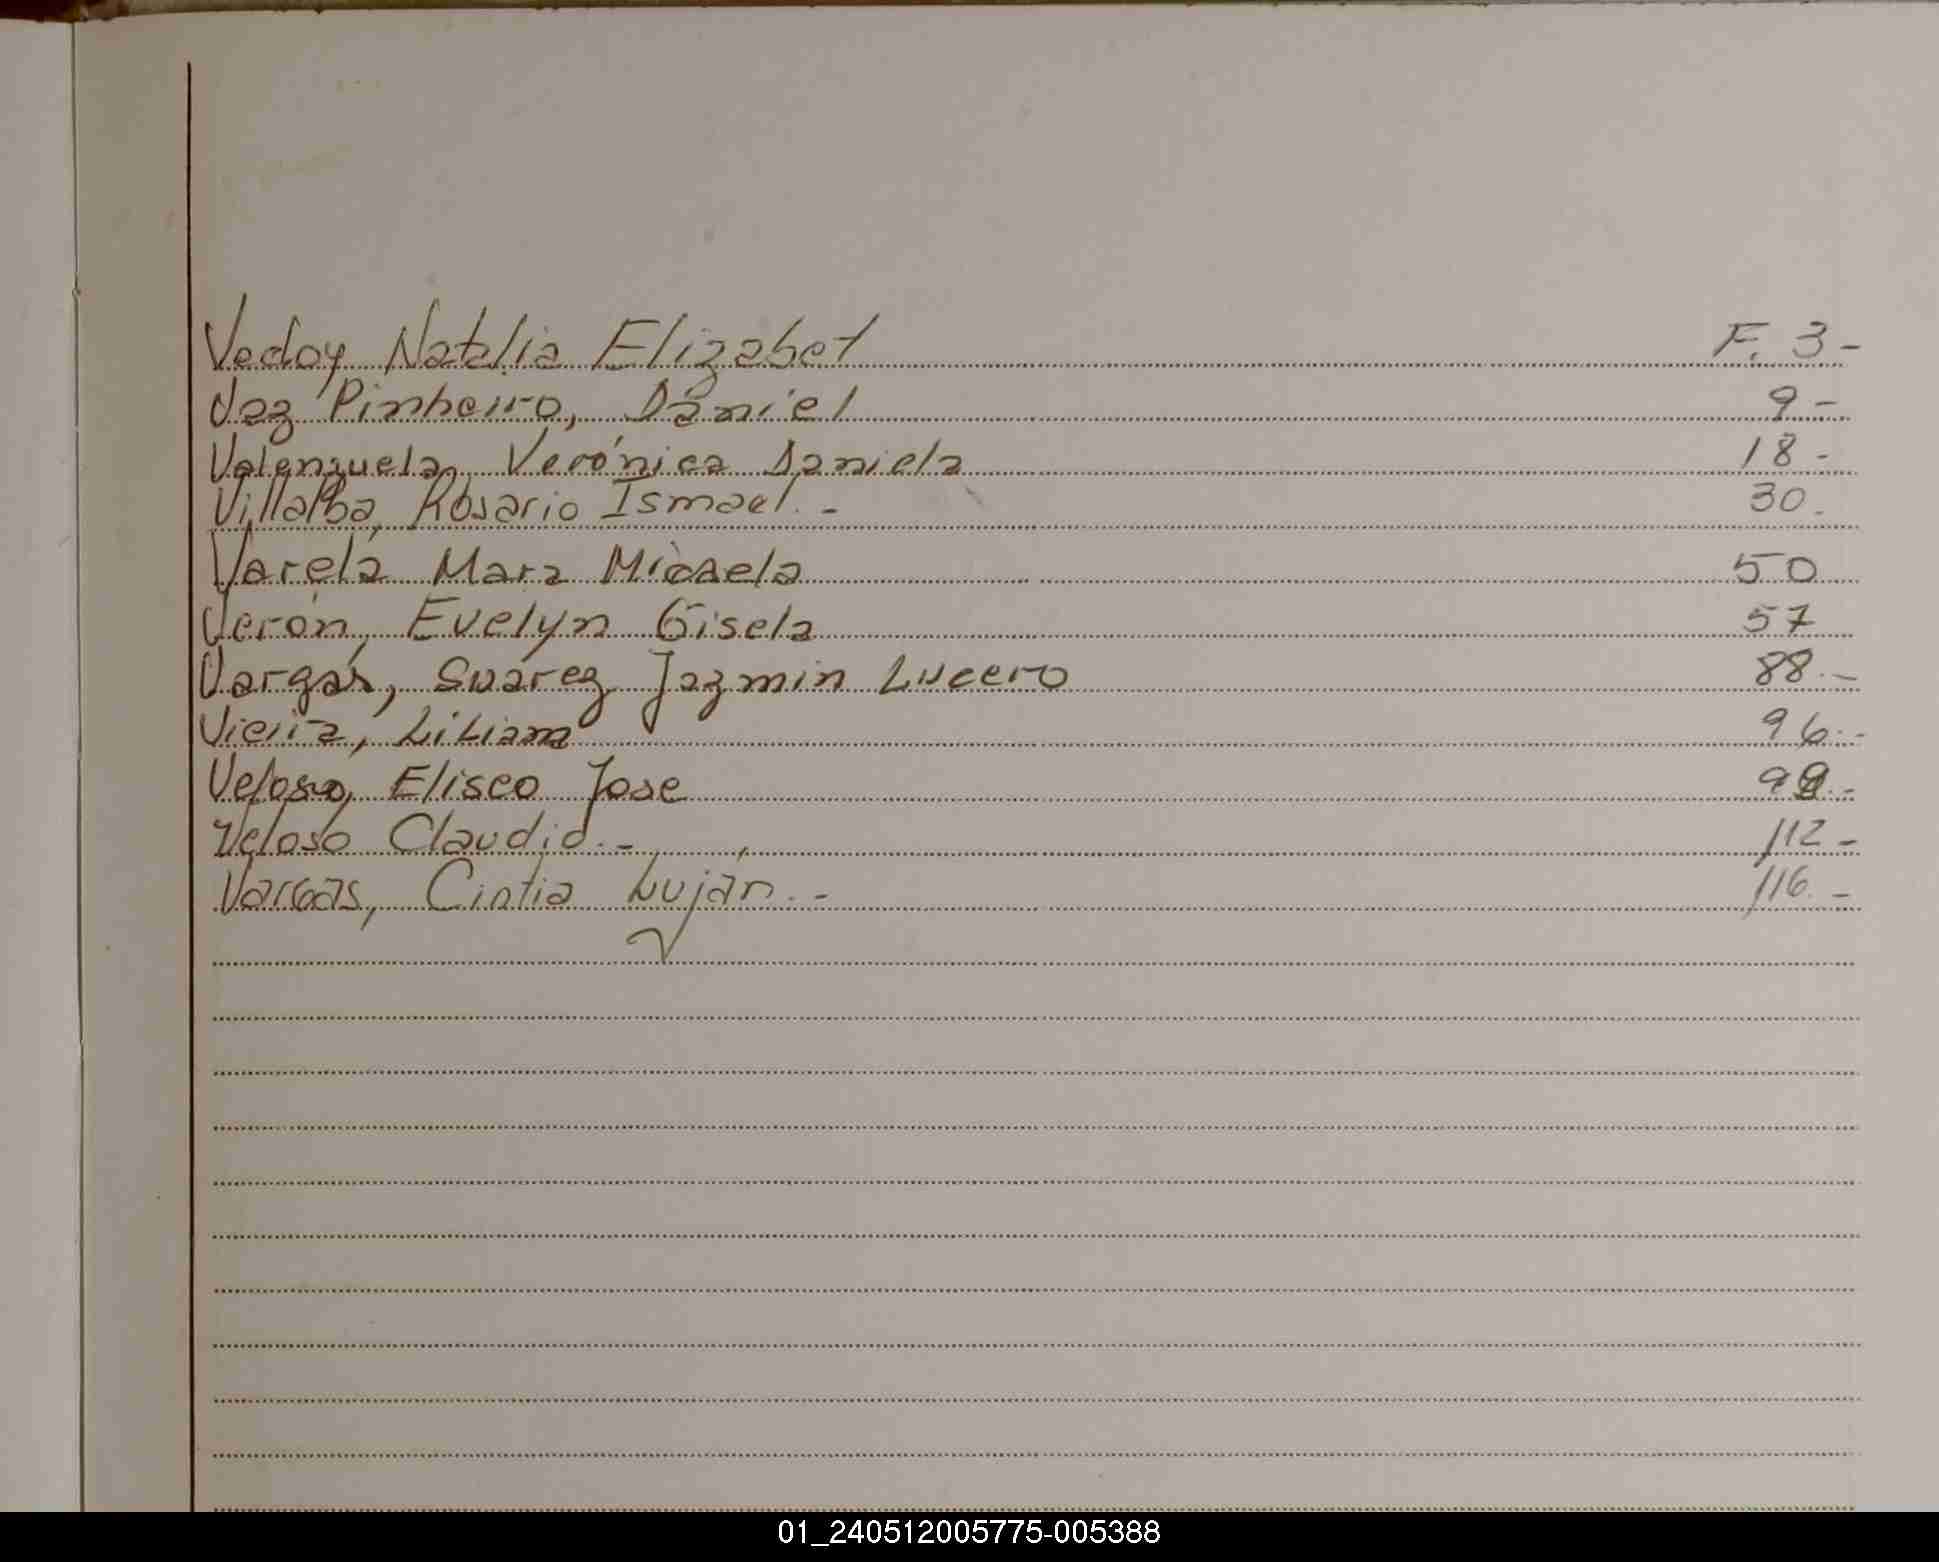 Vedoy Natalia Elizabet F. 3-
Vaz Pinheiro, Daniel 9-
Valenzuela, Verónica Daniela 18-
Villalba, Rosario Ismael.- 30.
Varela Mara Micaela 50
Verón, Evelyn Gisela 57
Vargas, Suárez Jazmin Lucero 88.-
Vieira, Liliana 96.-
Veloso, Eliseo Jose
Veloso Claudio.- 112-
Vargas, Cintia Luján.- 116.-
01_240512005775-005388